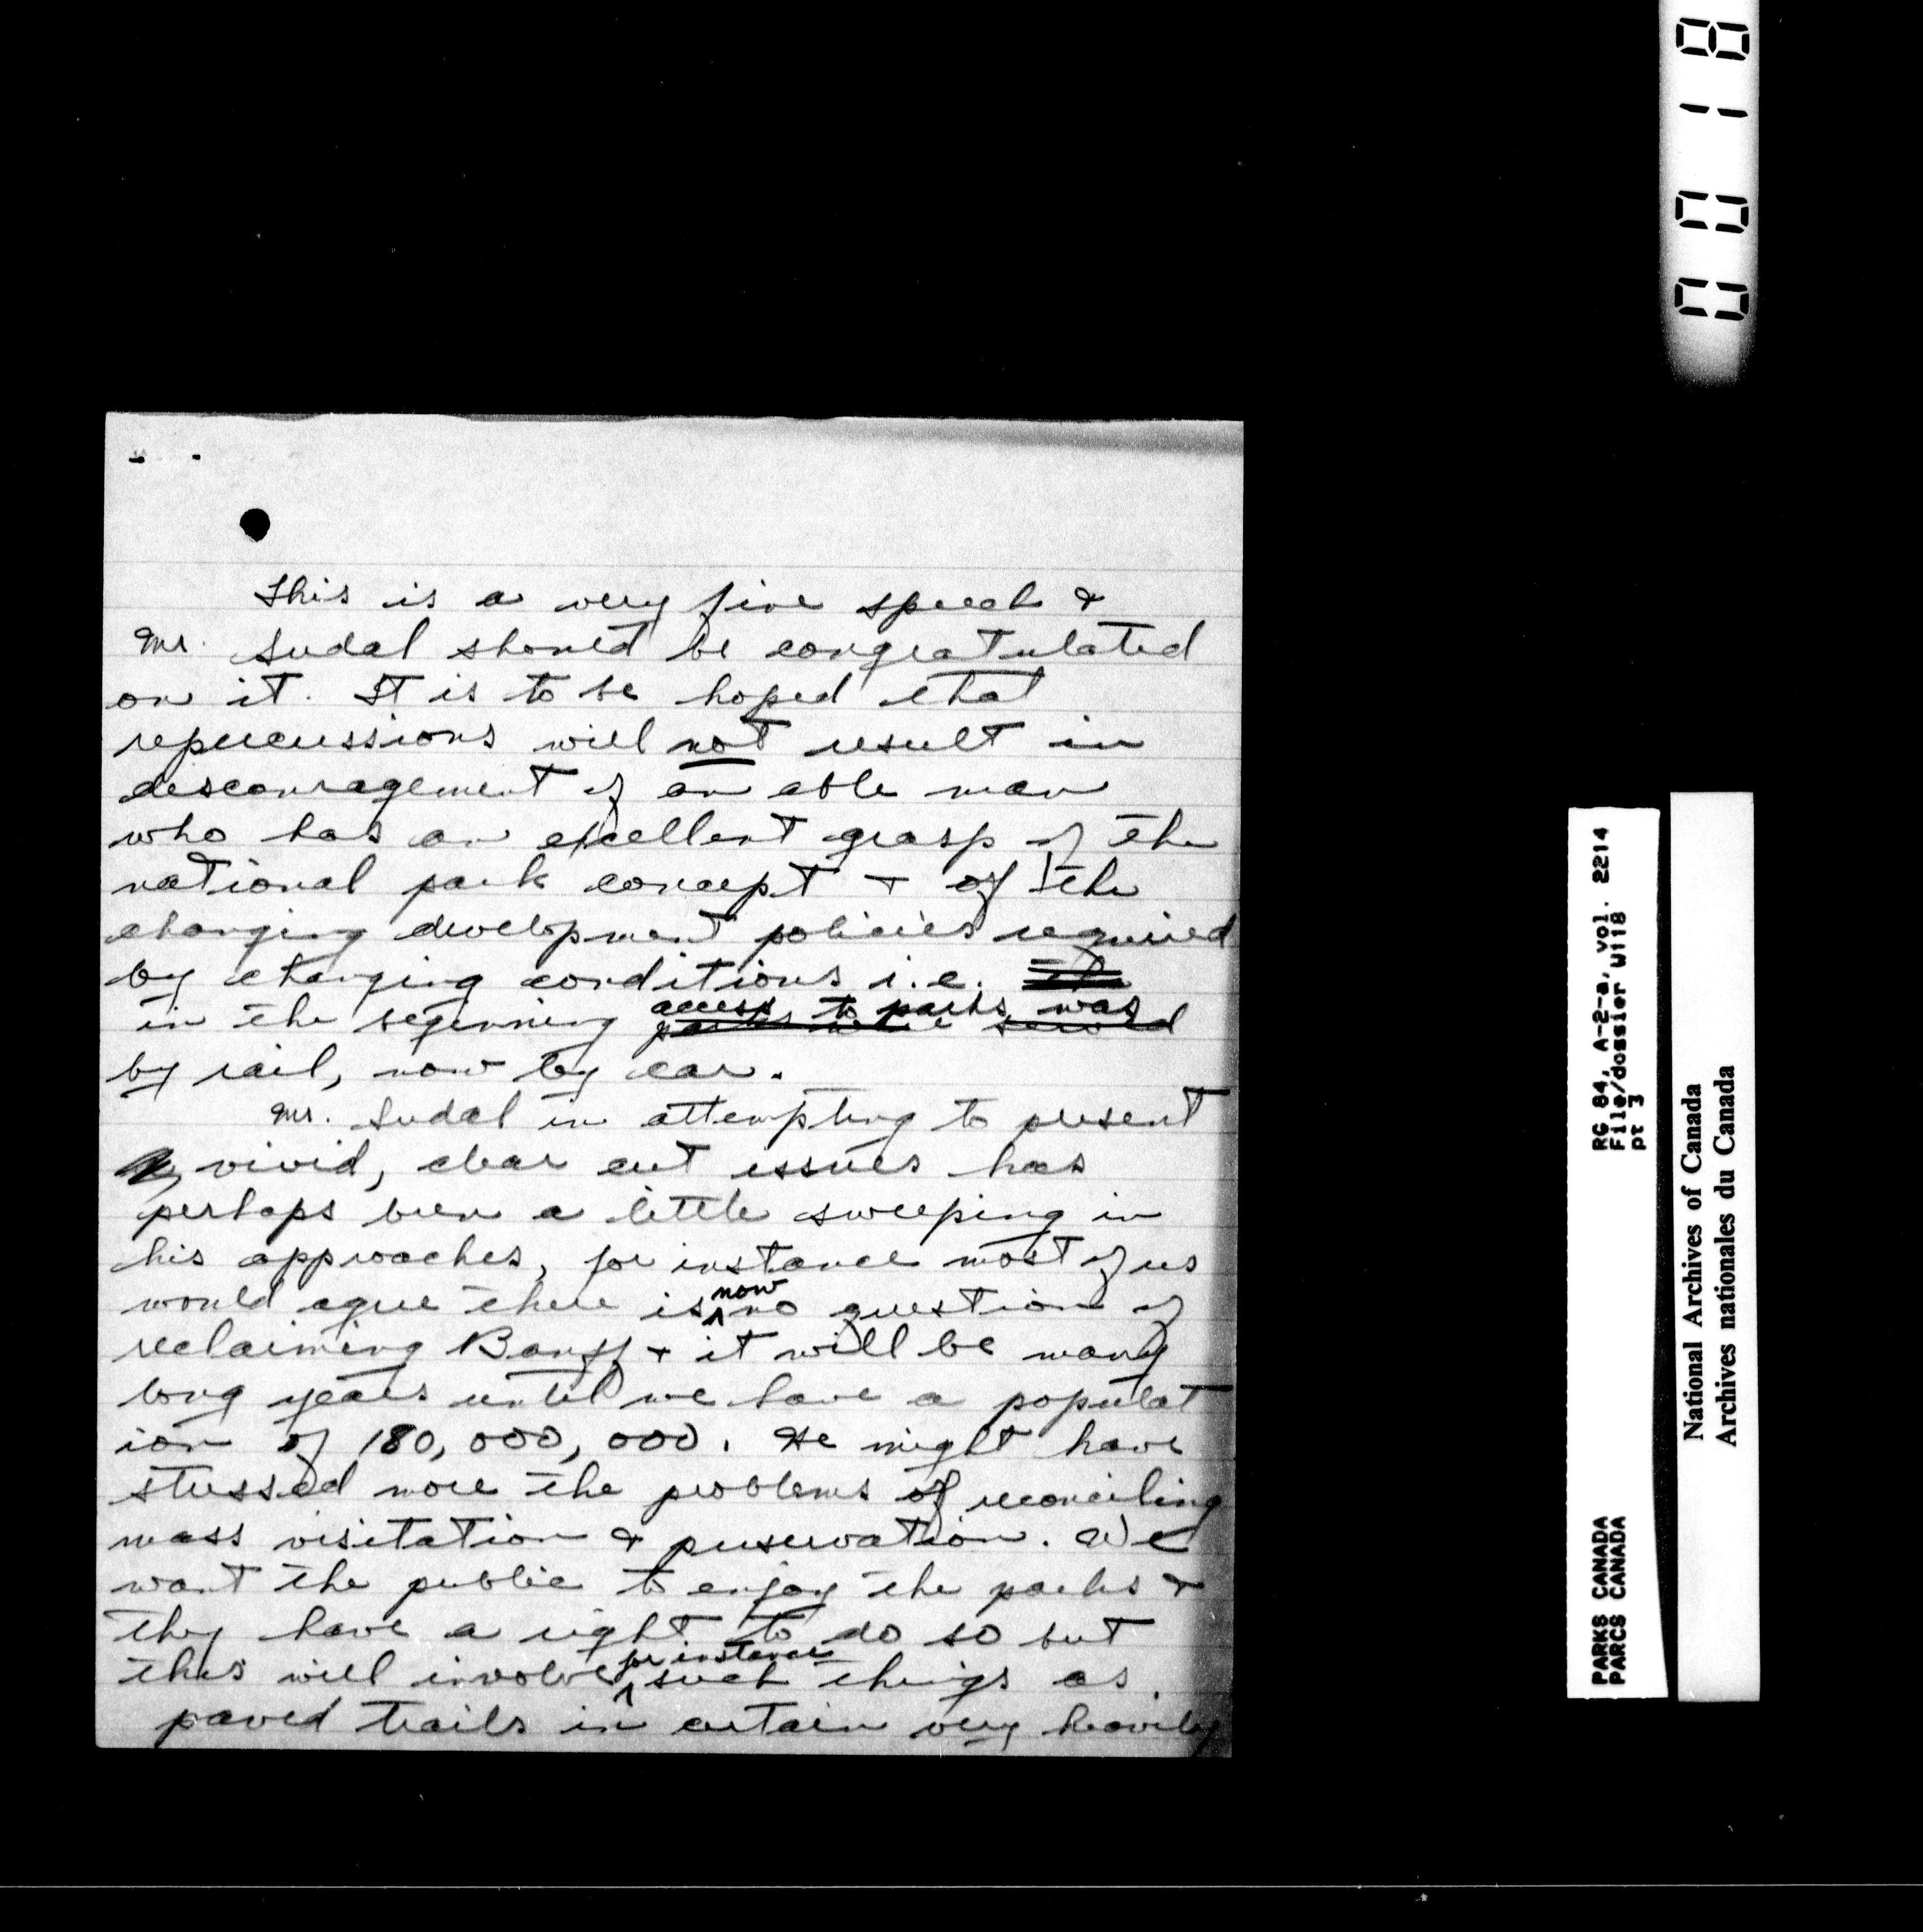 This is a very fine speech &
Mr. Sudal should be congratulated
on it. It is to be hoped that
repercussions will not result in
discouragement of an able man
who has an excellent grasp of the
national park concept + of the
changing development policies required
by changing conditions i.e. the
in the beginning parks were served access to parks was
by rail, now by car.
Mr. Sudal in attempting to present
vivid, clear cut issues has
perhaps been a little sweeping in
his approaches, for instance most of us
would agree there is now no question of
reclaiming Banff + it will be many
long years until we have a populat
ion of 180,000,000. He might have
stressed more the problems of reconciling
mass visitation & preservation. We
want the public to enjoy the parks +
they have a right to do so but
this will involve for instance such things as
paved trails in certain very heavily
00118
RG 84, A-2-a, vol. 2214
File/dossier W118
pt 3
PARKS CANADA
PARCS CANADA
National Archives of Canada
Archives nationales du Canada